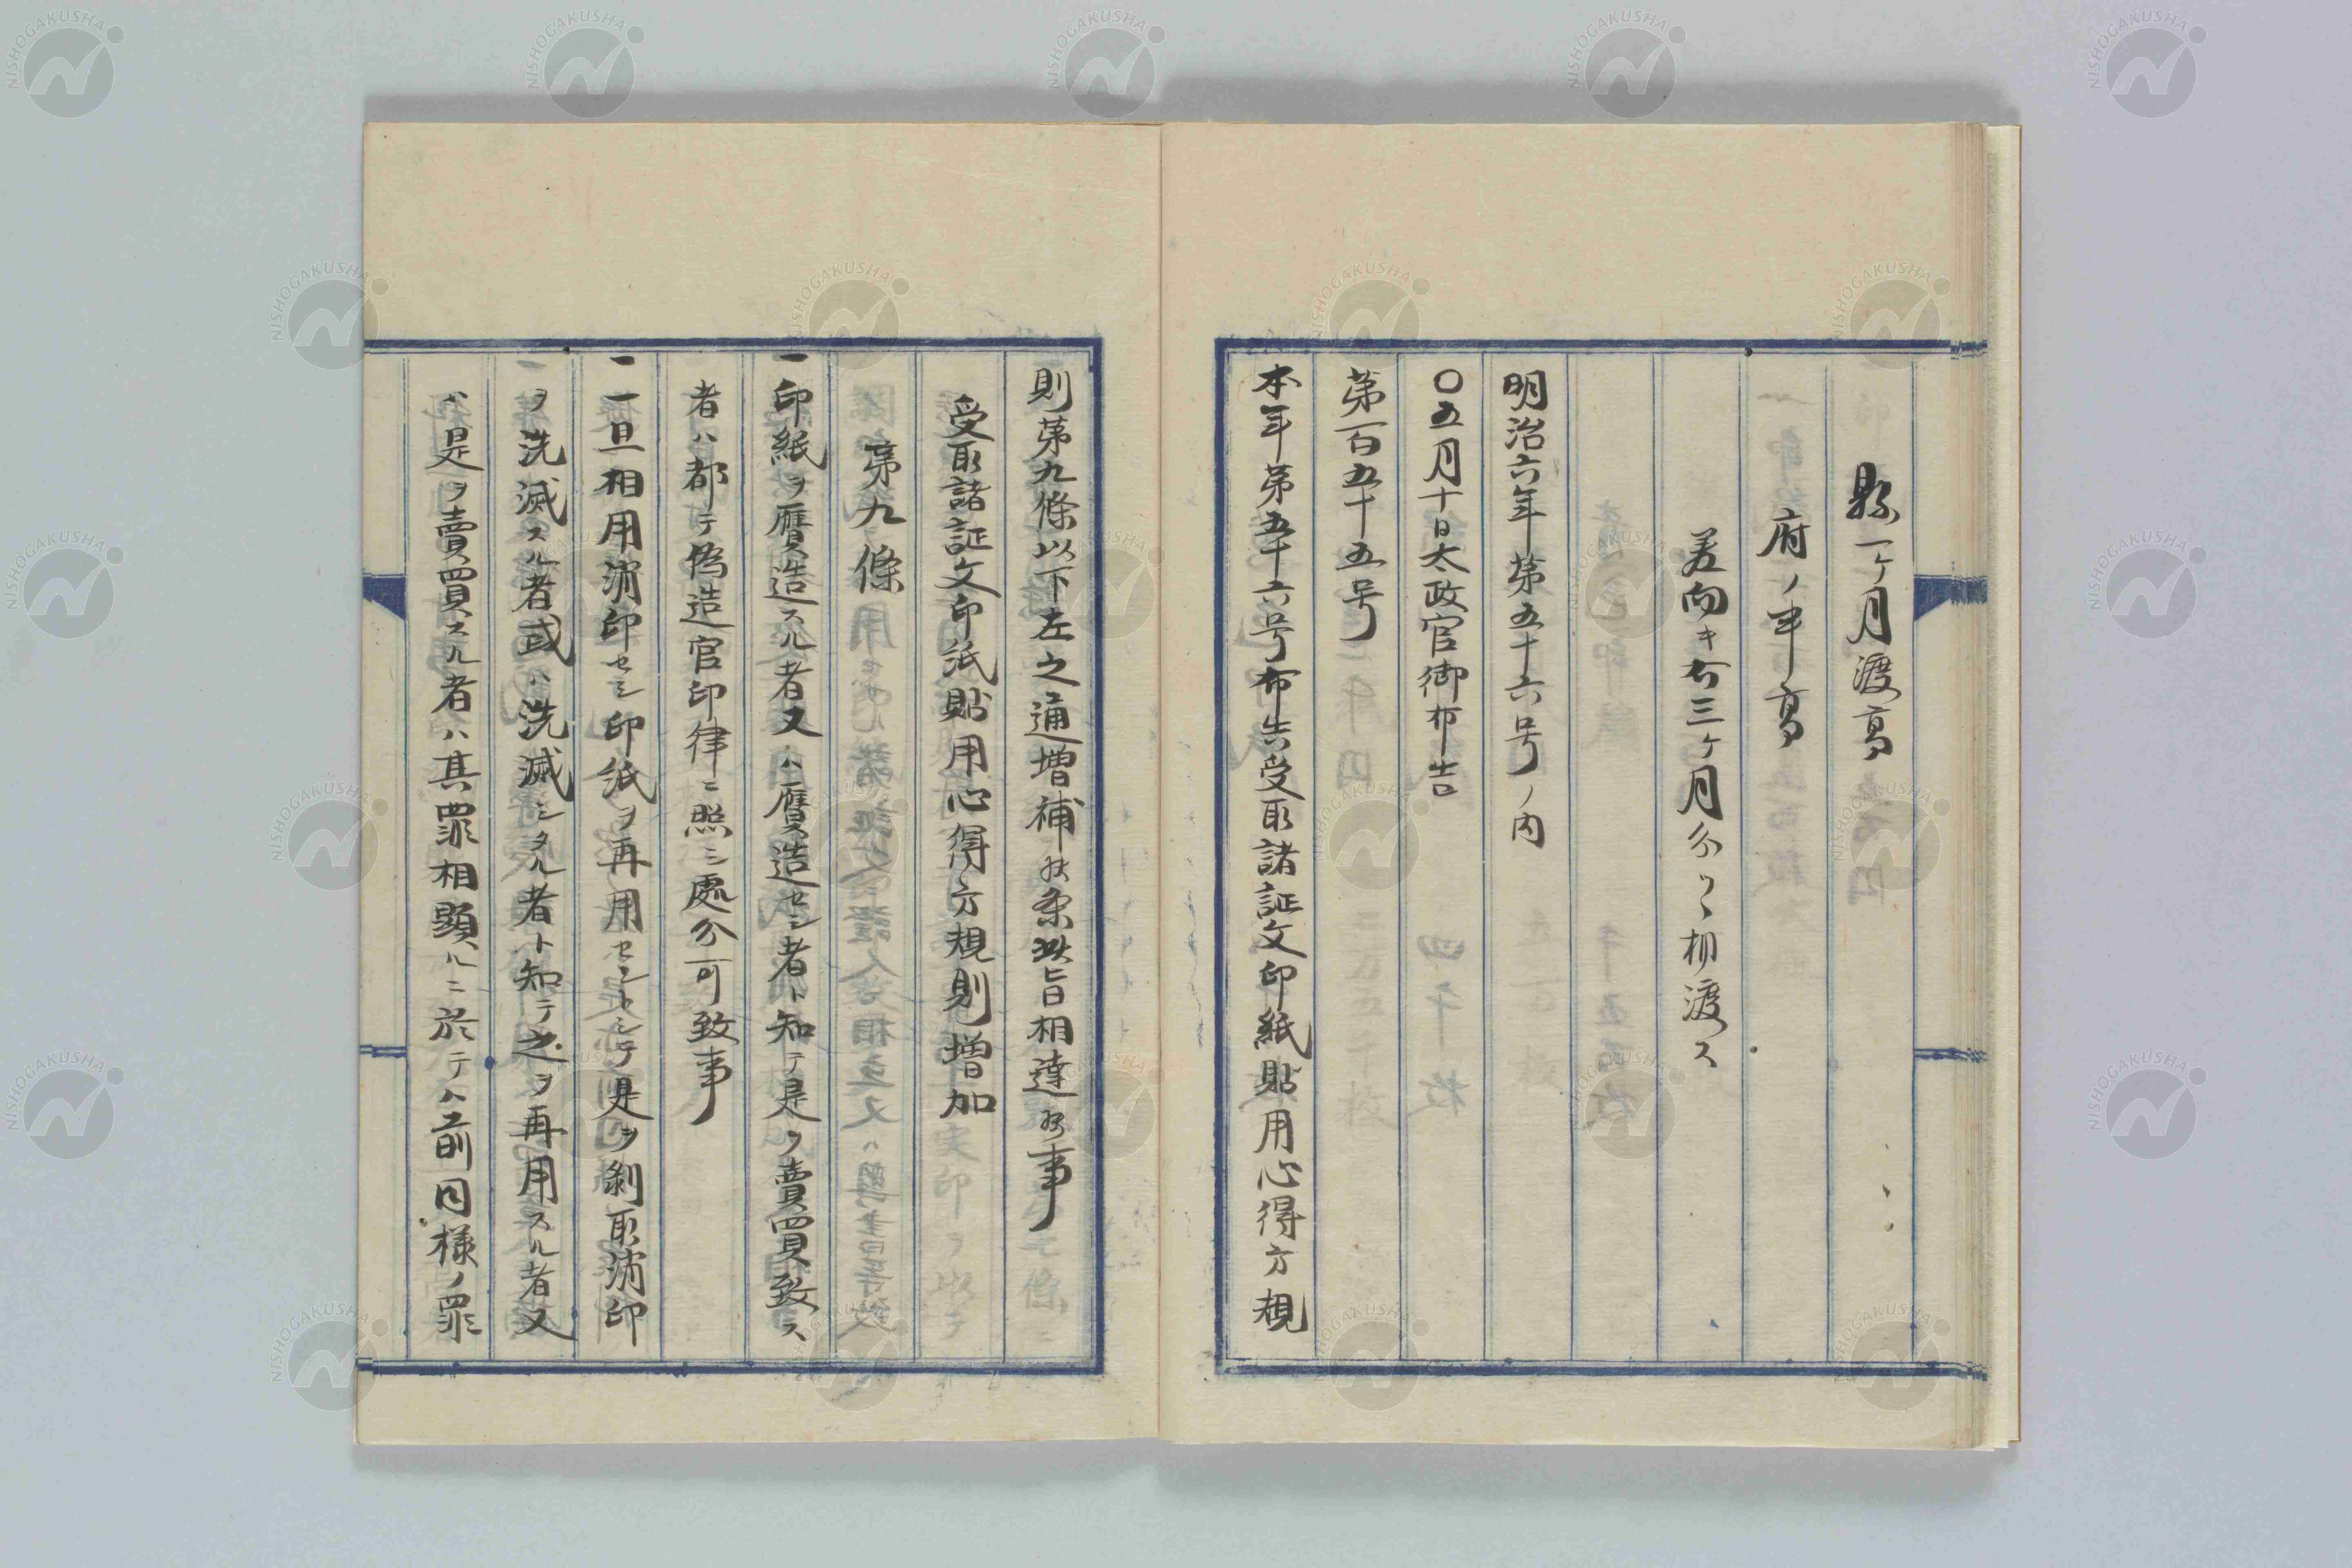 縣一ヶ月渡高
府ノ半高
差向キ右三ヶ月分ツヽ相渡ス
明治六年第五十六号ノ内
〇五月十日太政官御布告
第百五十五号
本年第五十六号布告受取諸証文印紙貼用心得方規
則第九條以下左之通増補候条此旨相達候事
受取諸証文印紙貼用心得方規則増加
第九條
一印紙ヲ贋造スル者又ハ贋造セシ者ト知テ是ヲ賣買致ス
者ハ都テ偽造官印律ニ照シ處分可致事
一一旦相用消印セシ印紙ヲ再用セントシテ是ヲ剝取消印
ヲ洗滅スル者或ハ洗滅シタル者ト知テ之ヲ再用スル者又
ハ是ヲ賣買スル者ハ其罪相顕ルニ於テハ前同様ノ罪
NISHOGAKUSHA